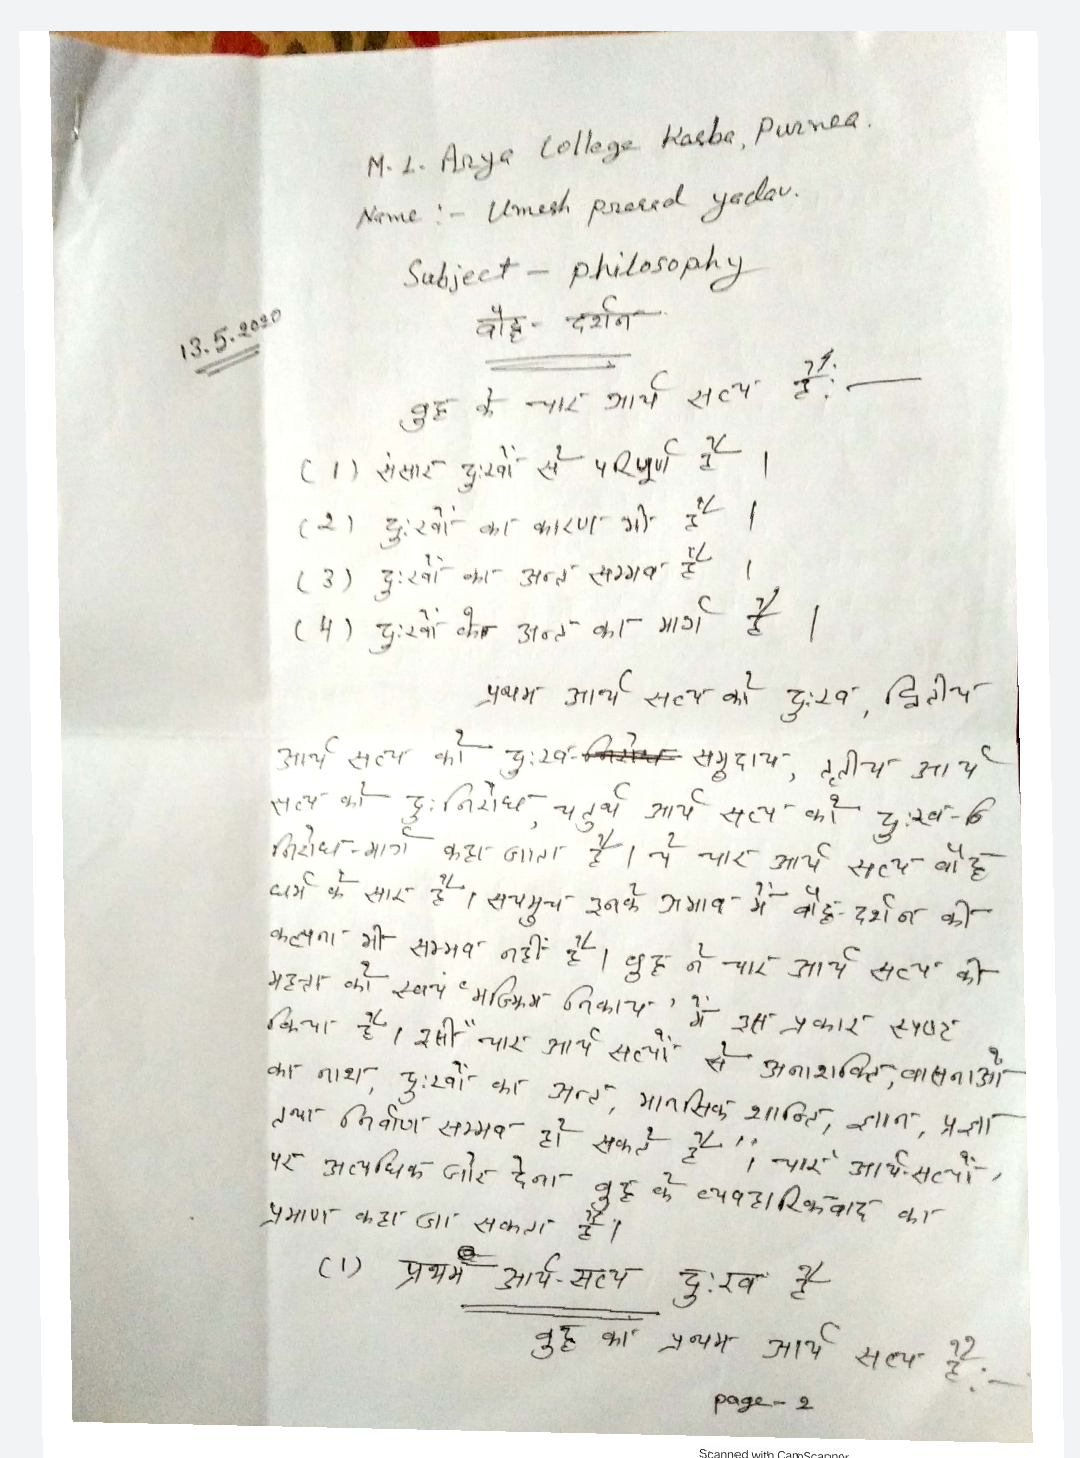 M. L. Arya College Kasba, Purnea.
Name :- Umesh prasad yadav.
Subject - philosophy
13.5.2020
बौद्ध - दर्शन
बुद्ध के चार आर्य सत्य हैं:—
(1) संसार दुःखों से परिपूर्ण है ।
(2) दुःखों का कारण भी है ।
(3) दुःखों का अन्त सम्भव है ।
(4) दुःखों के अन्त का मार्ग है ।
प्रथम आर्य सत्य को दुःख, द्वितीय
आर्य सत्य को दुःख-समुदाय, तृतीय आर्य
सत्य को दुःनिरोध, चतुर्थ आर्य सत्य को दुःख-नि
निरोध-मार्ग कहा जाता है। ये चार आर्य सत्य बौद्ध
धर्म के सार हैं। सचमुच इनके अभाव में बौद्ध-दर्शन की
कल्पना भी सम्भव नहीं है। बुद्ध ने चार आर्य सत्य की
महत्ता को स्वयं 'मज्झिम निकाय' में इस प्रकार स्पष्ट
किया है। इसी "चार आर्य सत्यों से अनाशक्ति, वासनाओं
का नाश, दुःखों का अन्त, मानसिक शान्ति, ज्ञान, प्रज्ञा
तथा निर्वाण सम्भव हो सकते हैं"। चार आर्य-सत्यों
पर अत्यधिक जोर देना बुद्ध के व्यवहारिकवाद का
प्रमाण कहा जा सकता है।
(1) प्रथम आर्य-सत्य दुःख है
बुद्ध का प्रथम आर्य सत्य है:—
page - 2
Scanned with CamScanner